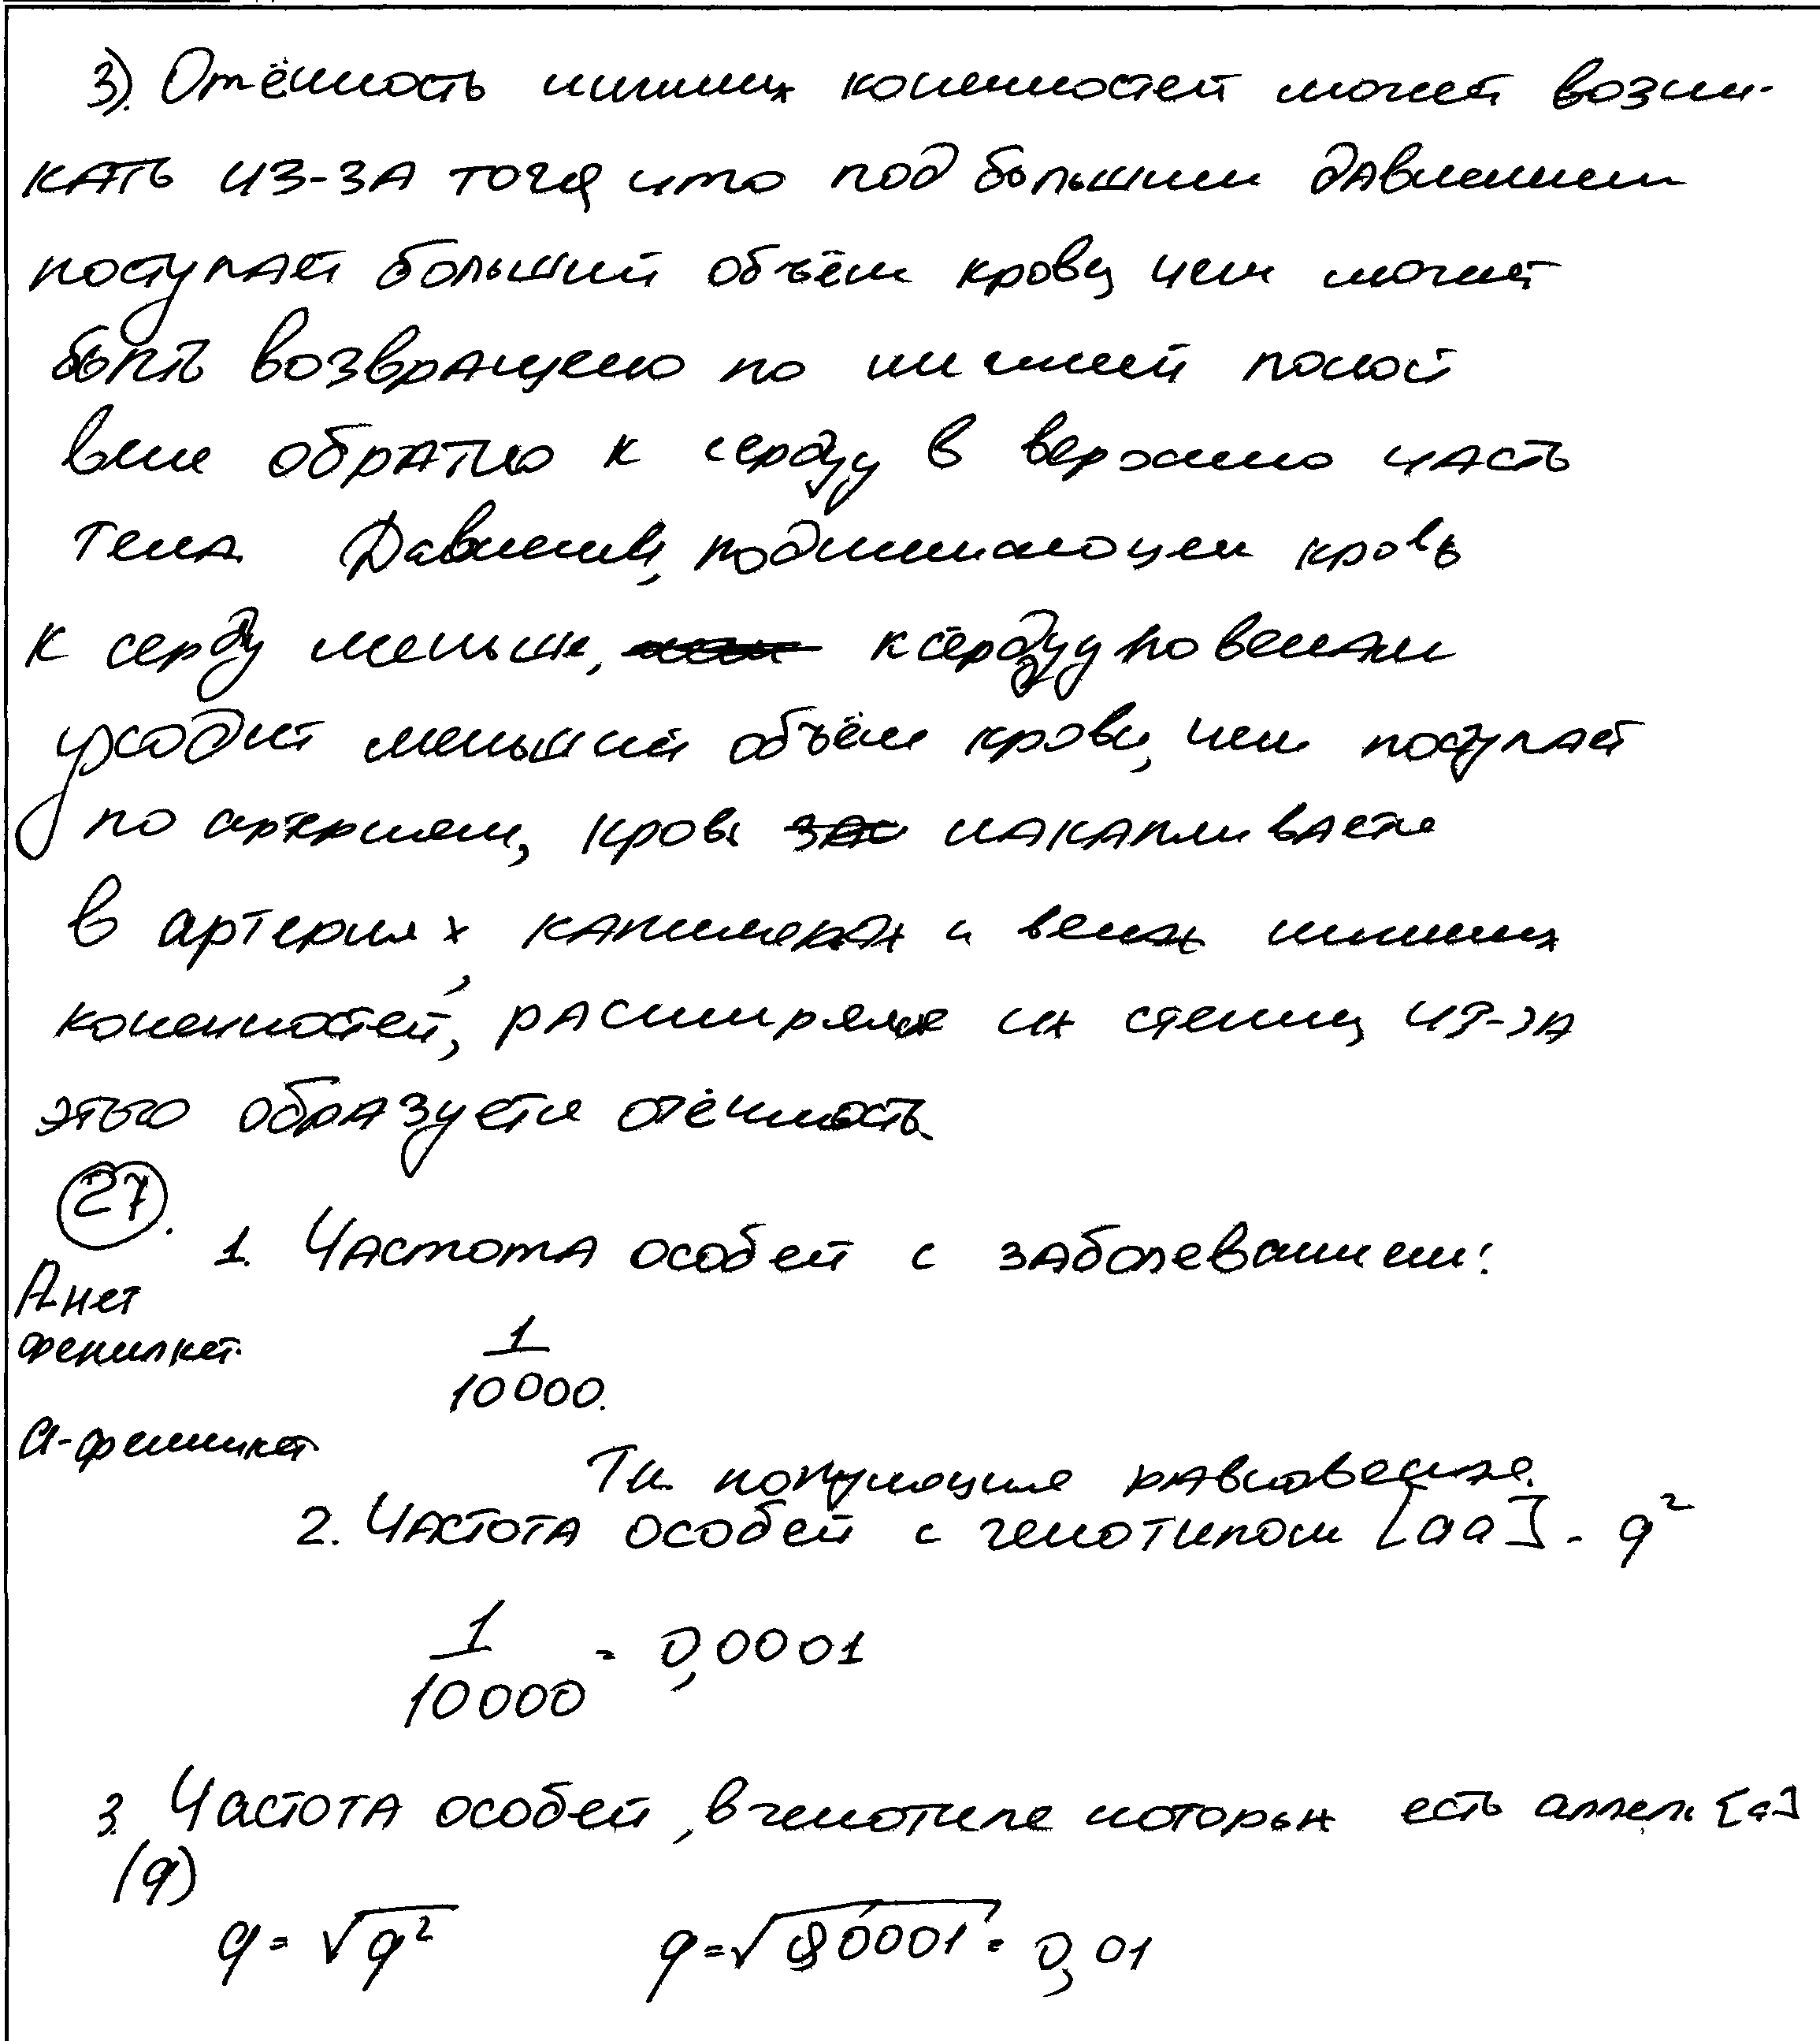 3). Отёчность нижних конечностей может возни-
кать из-за того, что под большим давлением
поступает больший объём крови, чем может
быть возвращено по нижней полой
вене обратно к сердцу в верхнюю часть
тела. Давление, поднимающее кровь
к сердцу меньше, к сердцу по венам
уходит меньший объём крови, чем поступает
по артериям, кровь накапливается
в артериях, капиллярах и венах нижних
конечностей, расширяя их стенки, из-за
этого образуется отёчность.
27.
1. Частота особей с заболеванием:
A нет
фенилкет.
1/10000.
а-фенилкет
Т.к. популяция равновесная.
2. Частота особей с генотипом [aa] - q²
1/10000 = 0,0001
3. Частота особей, в генотипе которых есть аллель [a]
(q)
q = √q² q = √0,0001 = 0,01